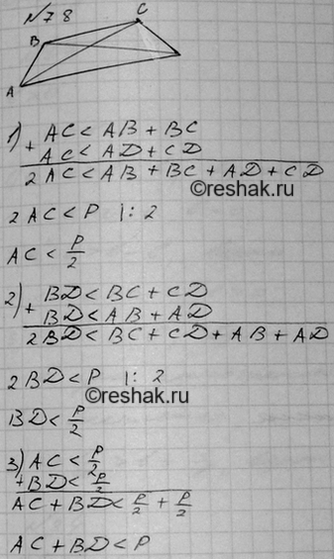 №78
C
B
A
1) AC < AB + BC
+ AC < AD + CD
2AC < AB + BC + AD + CD
©reshak.ru
2AC < P |: 2
AC < P/2
2) BD < BC + CD
+ BD < AB + AD
2BD < BC + CD + AB + AD
2BD < P |: 2
©reshak.ru
BD < P/2
3) AC < P/2
+ BD < P/2
AC + BD < P/2 + P/2
AC + BD < P